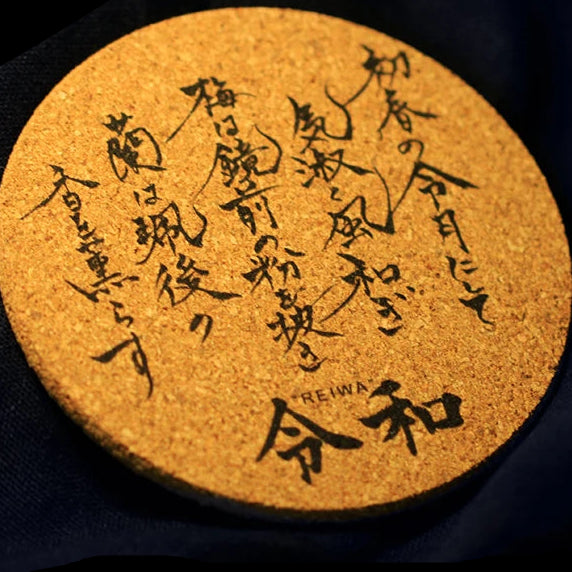 初春の令月にして
気淑く風和ぎ
梅は鏡前の粉を披き
蘭は珮後の
香を薫らす
REIWA
令和